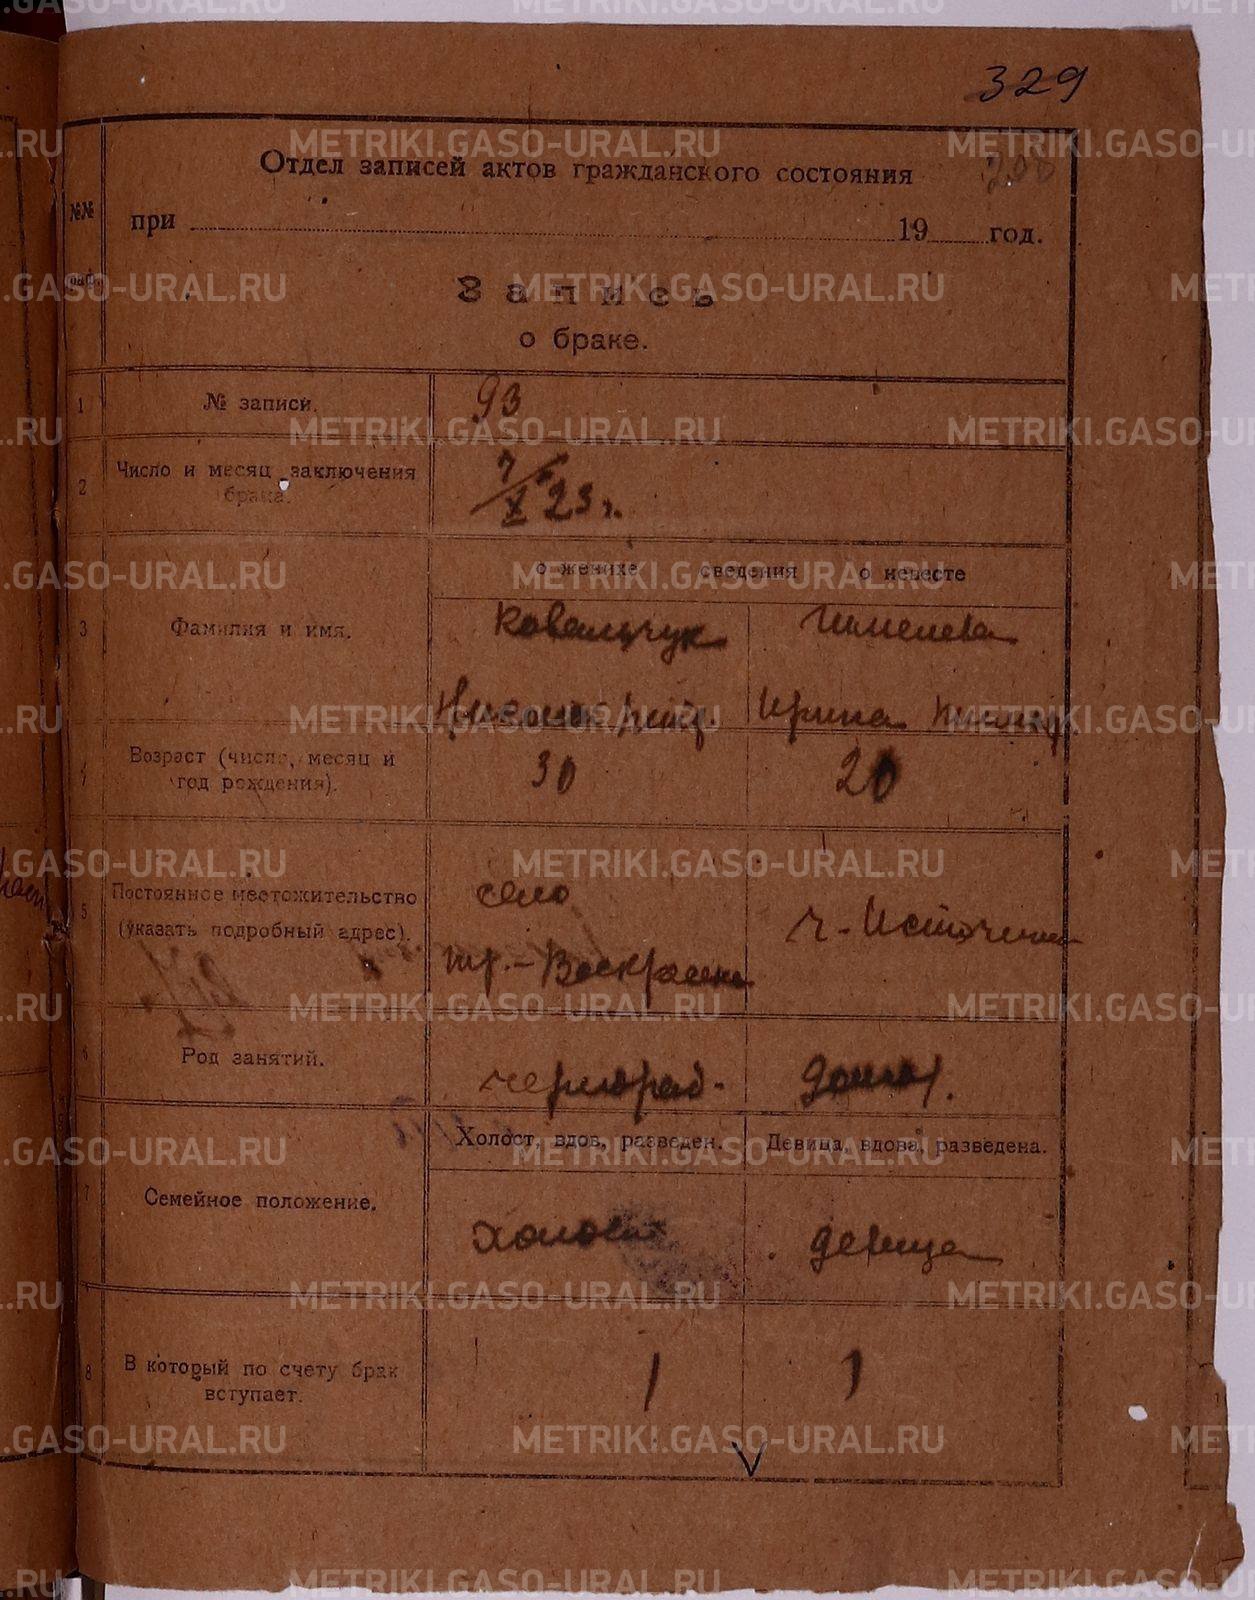 329
Отдел записей актов гражданского состояния
208
№№
при 19 год.
Запись
о браке.
1 № записи. 93
2 Число и месяц заключения брака. 7/X 23 г.
о женихе сведения о невесте
3 Фамилия и имя. Ковальчук
Ирина
4 Возраст (число, месяц и год рождения). 30 20
5 Постоянное местожительство село
(указать подробный адрес).
6 Род занятий. чернораб.
Холост, вдов, разведен. Девица, вдова, разведена.
7 Семейное положение. холост девица
8 В который по счету брак вступает. 1 1
V
METRIKI.GASO-URAL.RU